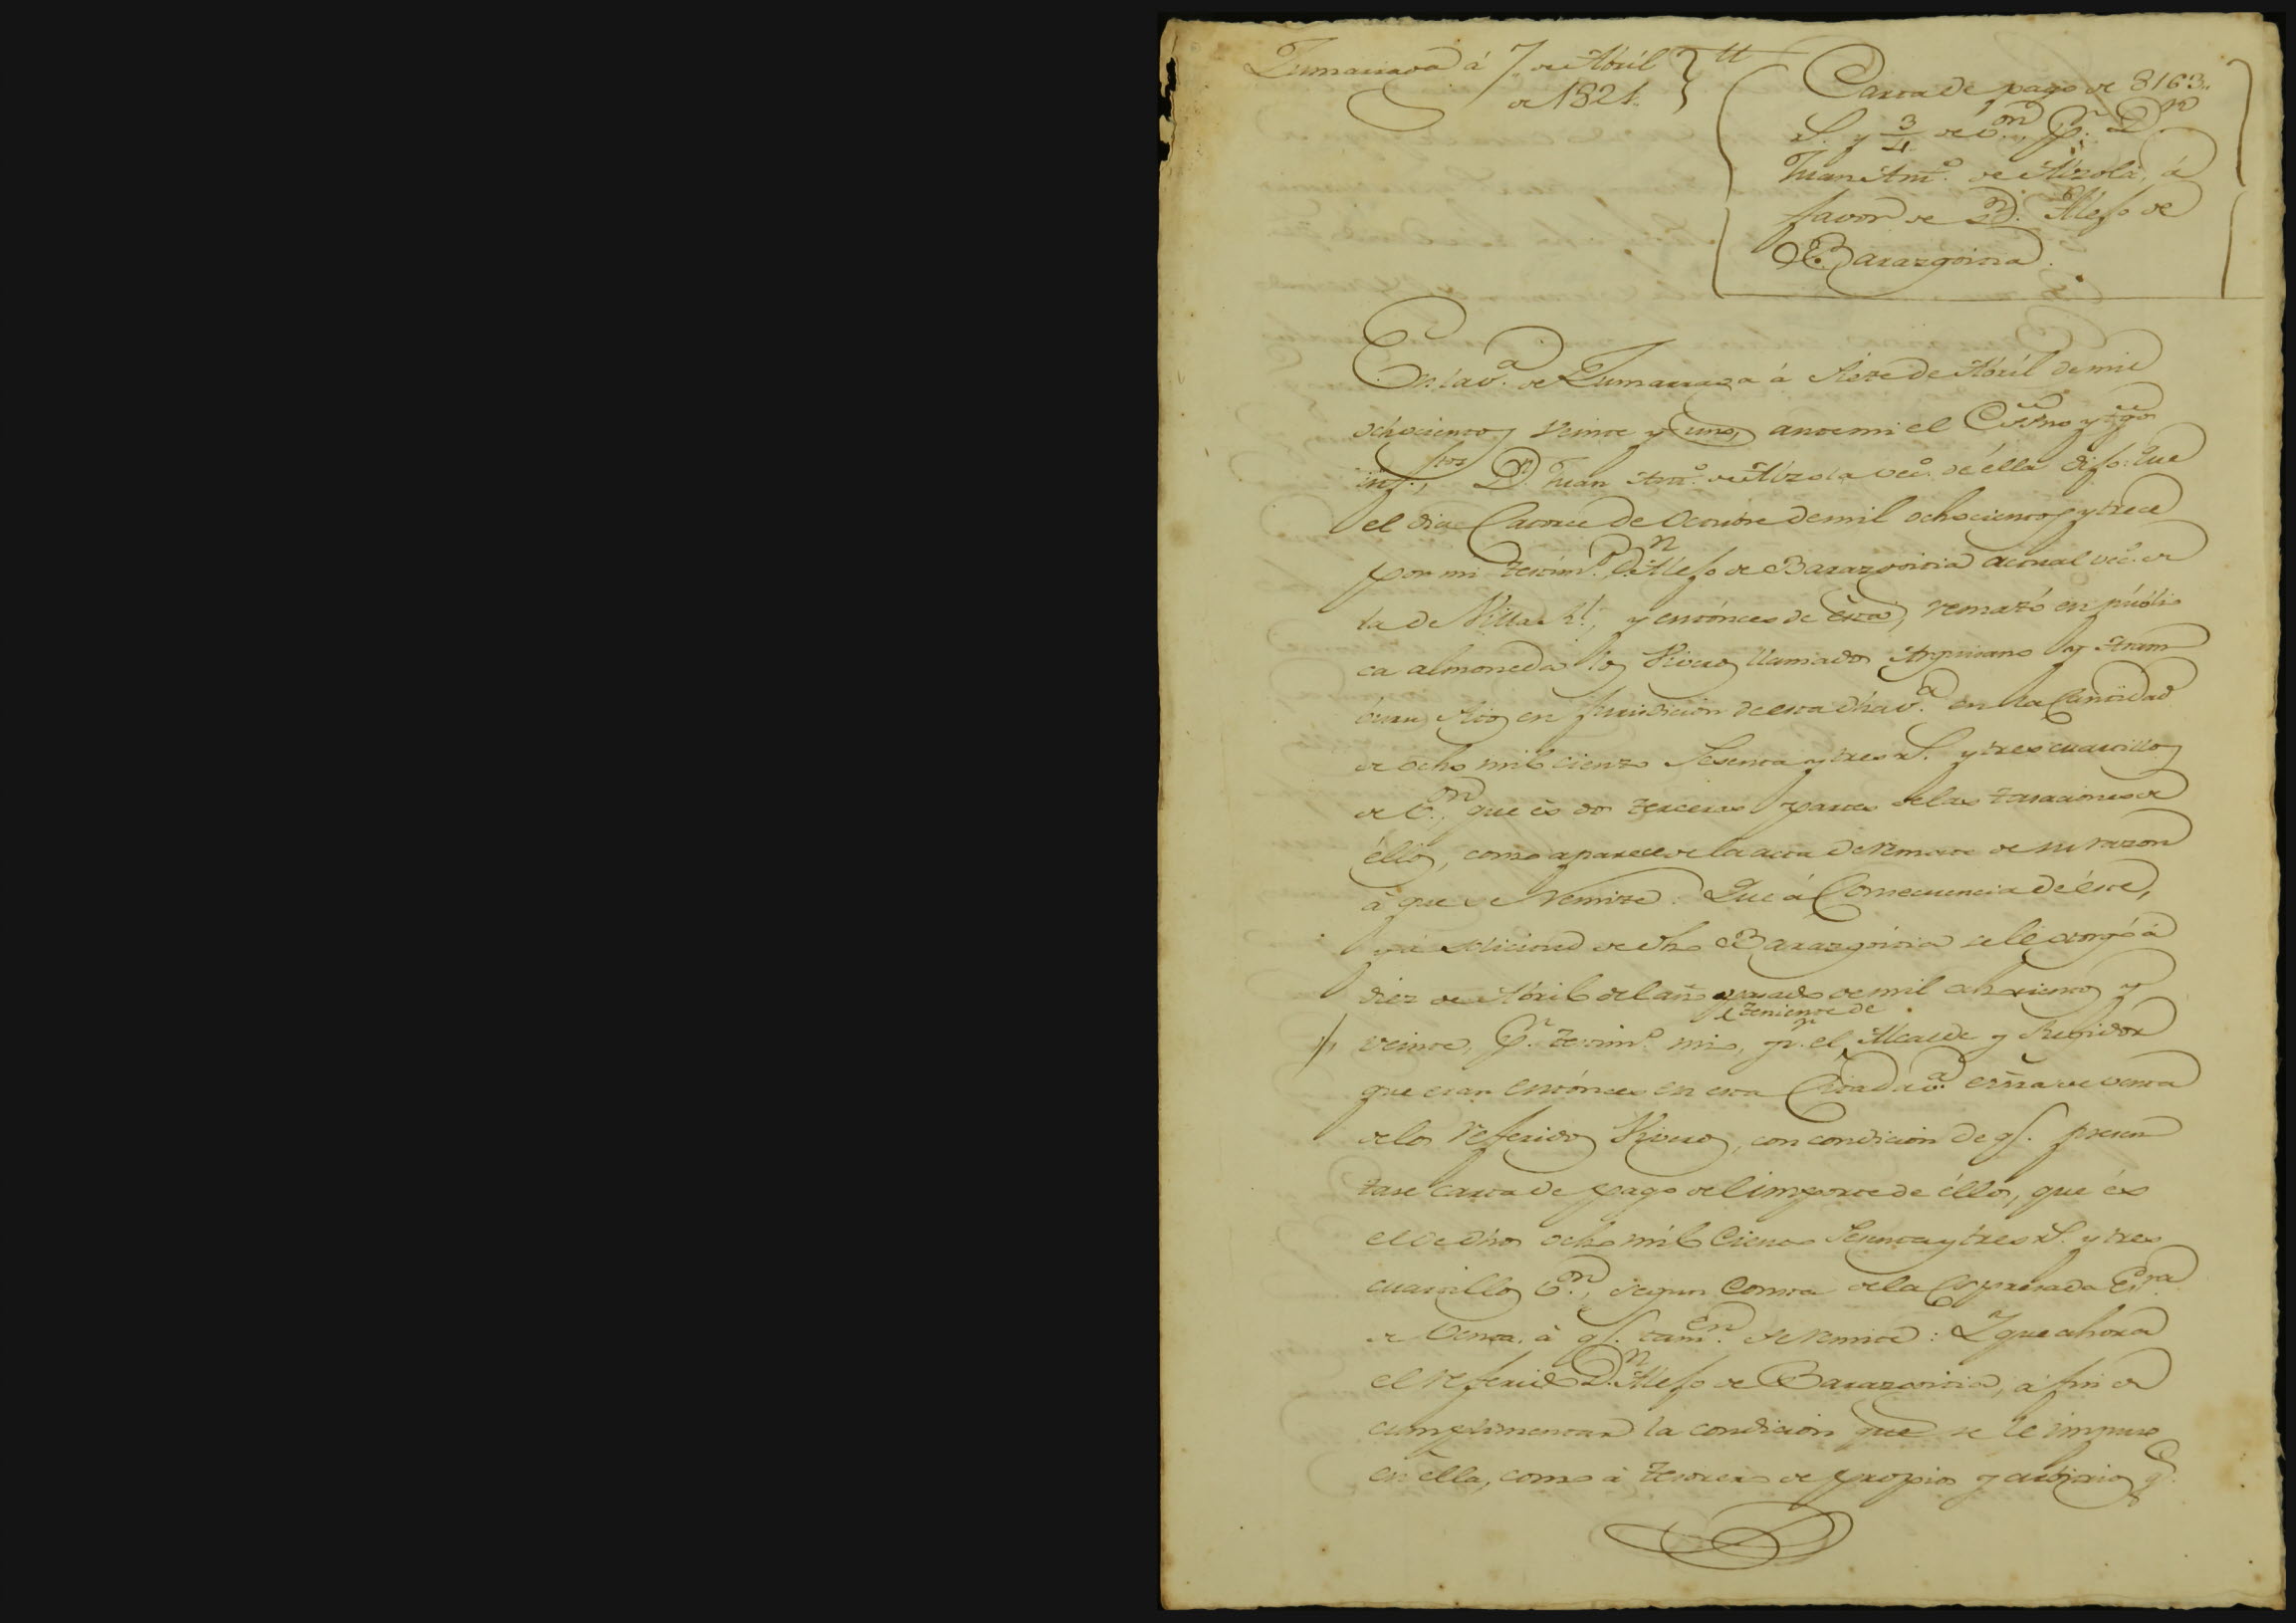 Zumarraga á 7. de Abril
de 1821.
tt
Carta de pago de 8163..
rS. y 3/4 de Von, pr. Dn
Juan Anto. de Alzola, á
favor de Dn. Alejo de
Barazgoitia.
En la va. de Zumarraga á siete de Abril de mil
ochocientos veinte y uno, ante mi el Essno y tgos
infros, Dn. Juan Anto. de Alzola veco. de élla dijo: Que
el dia Catorce de Octubre de mil ochocientos y trece
por mi testimo. Dn. Alejo de Barazgoitia actual veco. de
la de Villa Rl., y entónces de ésta, remató en públi
ca almoneda los Viveros llamados y Aram
buru sitos en jurisdicion de esta dha va. en la Cantidad
de ocho mil ciento Sesenta y tres rS. y tres cuartillos
de Von., que és dos terceras partes de las tasaciones de
éllos, como aparece de la acta de remate de su razon
á que se remite: Que á Consecuencia de éste,
y á solicitud de dho Barazgoitia se le otorgó á
diez de Abril del año pasado de mil ochocientos y
el teniente de
veinte, pr. testimo. mio, pr. el Alcalde y Regidor
que eran entónces en esta Citada va. essña de venta
de los referidos Viveros, con condicion de qe. presen
tase carta de pago del importe de éllos, que és
el de dhos ocho mil Ciento Sesenta y tres rS. y tres
cuartillos Von., segun Consta de la Expresada Esra
de Venta, á qe. tamen. se remite: Y que ahora
el referido Dn. Alejo de Barazgoitia, á fin de
cumplimentar la condicion que se le impuso
en élla, como á tesorero de propios y arbitrios qe.